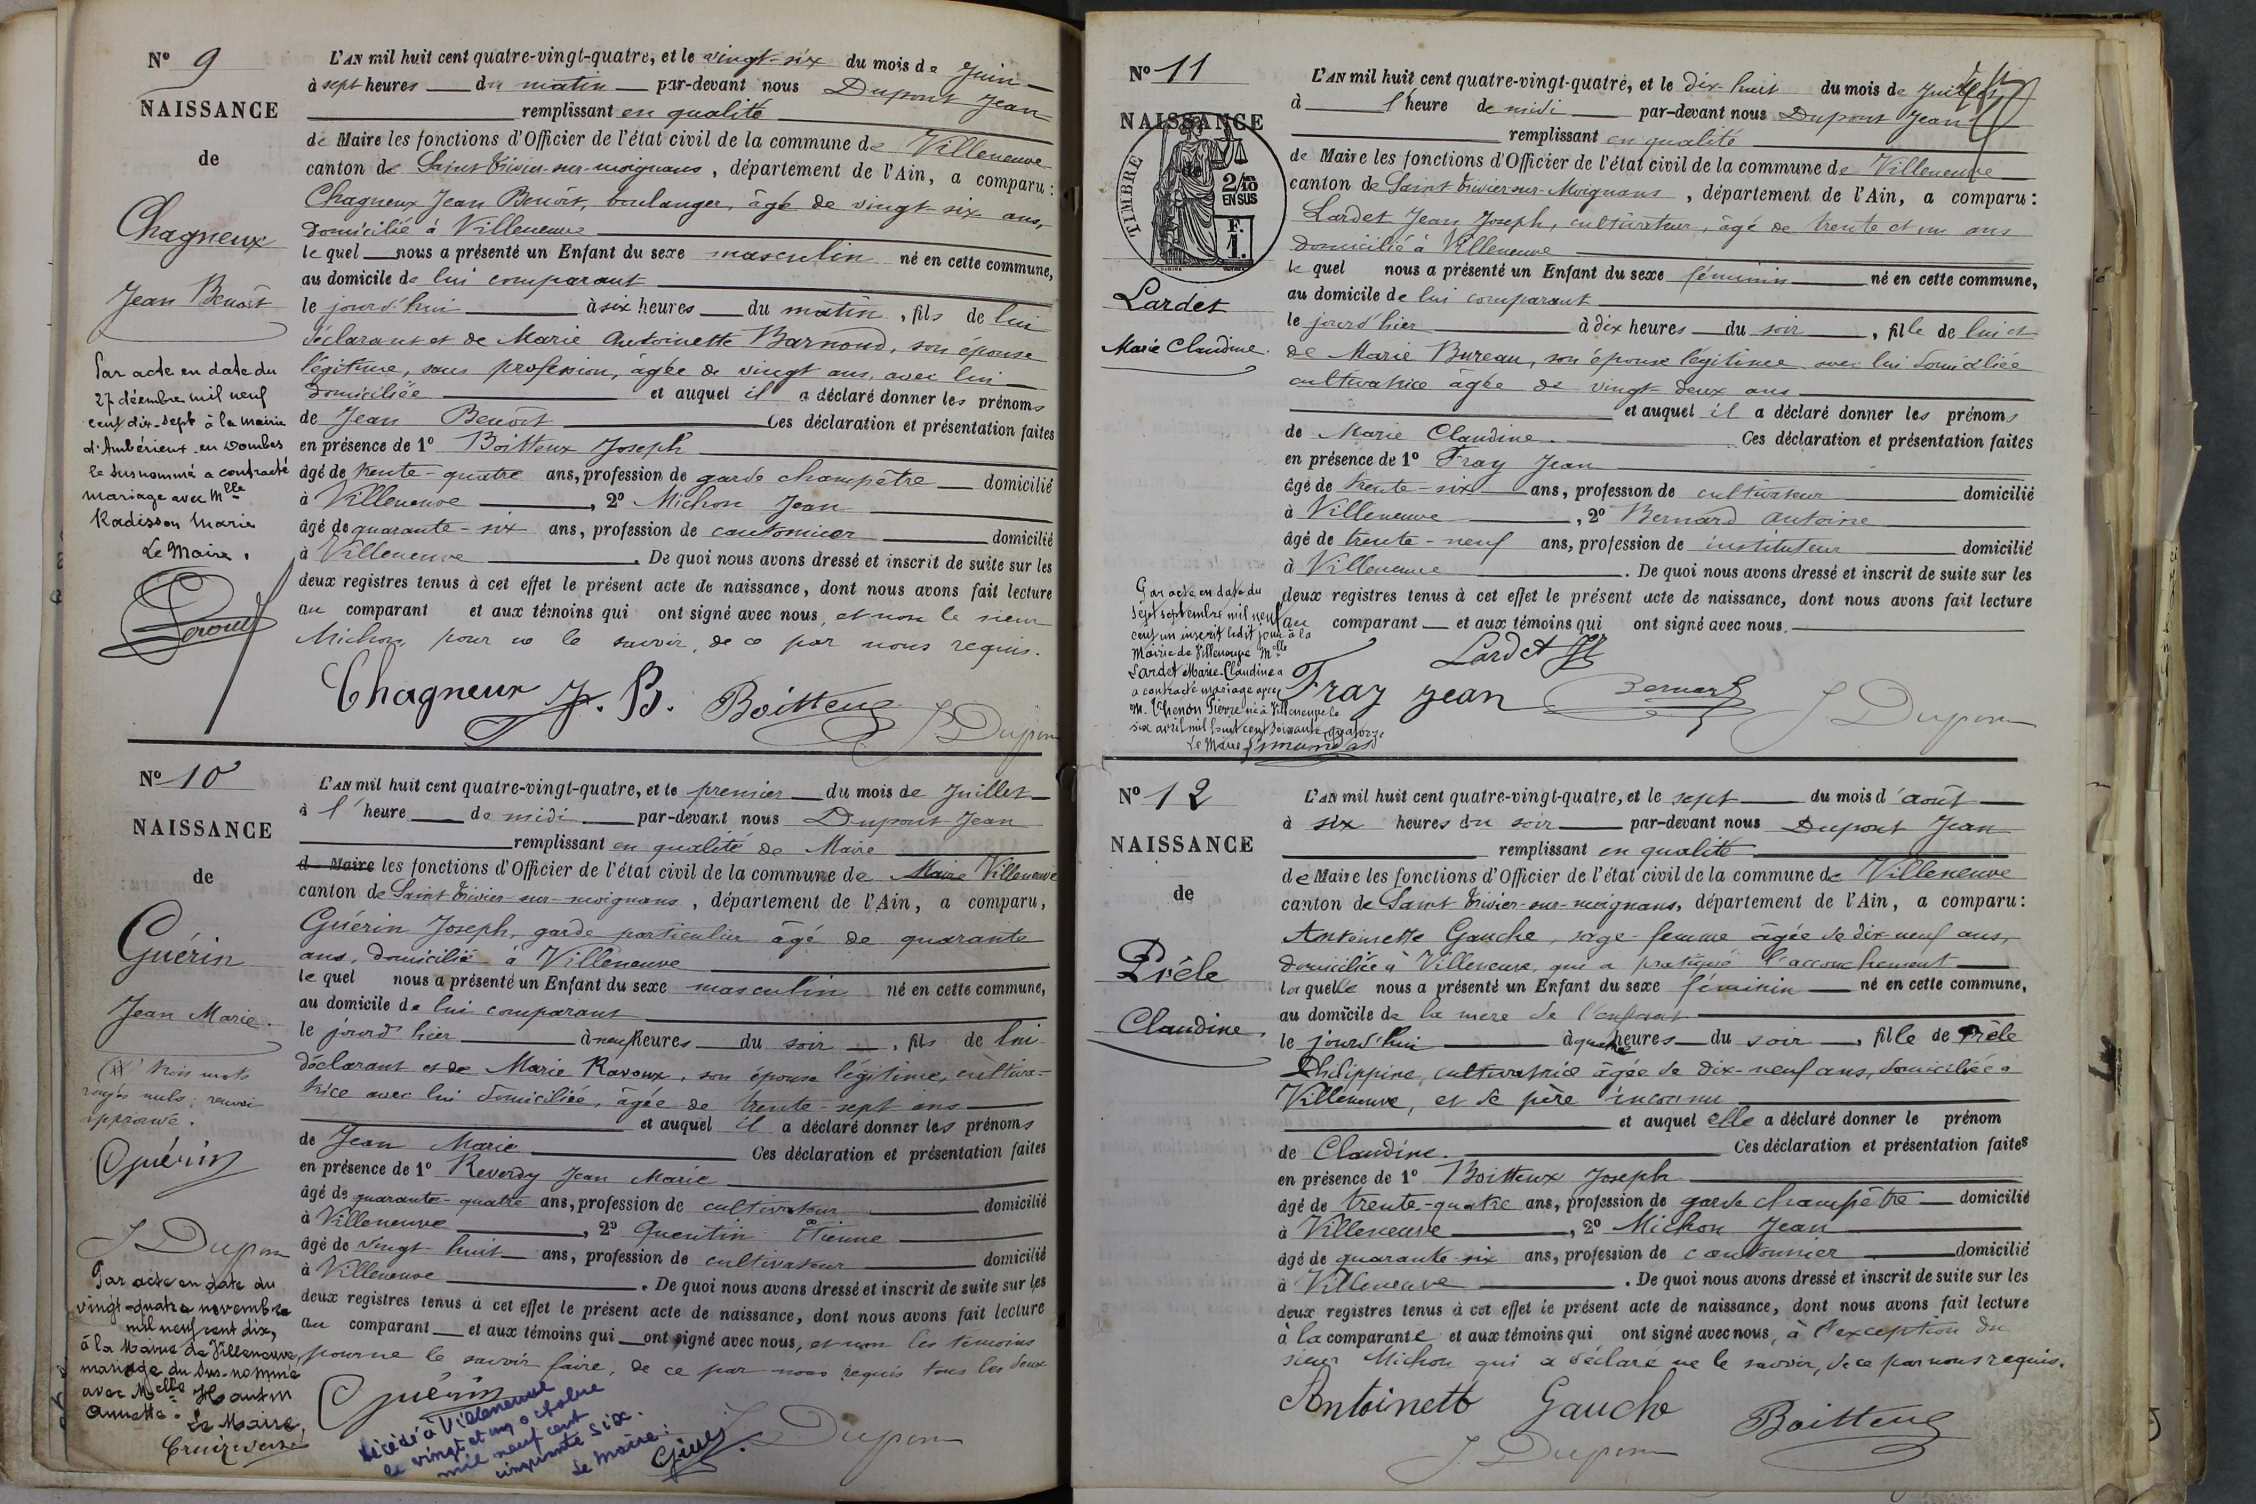 Nº 9
NAISSANCE
de
Chagneux
Jean Benoît
Par acte en date du
27 décembre mil neuf
cent dix-sept à la mairie
d'Ambérieux en Dombes
le susnommé a contracté
mariage avec Mlle
Radisson Marie
Le Maire,
L'AN mil huit cent quatre-vingt-quatre, et le vingt-six du mois de Juin
à sept heures du matin par-devant nous Dupont Jean
remplissant en qualité
de Maire les fonctions d'Officier de l'état civil de la commune de Villeneuve
canton de Saint Trivier-sur-moignans, département de l'Ain, a comparu :
Chagneux Jean Benoît, boulanger, âgé de vingt-six ans,
domicilié à Villeneuve
le quel nous a présenté un Enfant du sexe masculin né en cette commune,
au domicile de lui comparant
le jourd'hui à six heures du matin, fils de lui
déclarant et de Marie Antoinette Barnoud, son épouse
légitime, sans profession, âgée de vingt ans, avec lui
domiciliée et auquel il a déclaré donner les prénoms
de Jean Benoît Ces déclaration et présentation faites
en présence de 1º Boitteux Joseph
âgé de trente-quatre ans, profession de garde champêtre domicilié
à Villeneuve, 2º Michon Jean
âgé de quarante-six ans, profession de cantonnier domicilié
à Villeneuve. De quoi nous avons dressé et inscrit de suite sur les
deux registres tenus à cet effet le présent acte de naissance, dont nous avons fait lecture
au comparant et aux témoins qui ont signé avec nous, et non le sieur
Michon, pour ne le savoir, de ce par nous requis.
Chagneux J. B. Boitteux J. Dupont
Nº 10
NAISSANCE
de
Guérin
Jean Marie.
trois mots
rayés nuls; renvoi
approuvé.
Guérin
J. Dupont
Par acte en date du
vingt-quatre novembre
mil neuf cent dix,
à la Mairie de Villeneuve,
mariage du sus-nommé
avec Melle Hautin
Annette.
Le Maire,
L'AN mil huit cent quatre-vingt-quatre, et le premier du mois de Juillet
à l'heure de midi par-devant nous Dupont Jean
remplissant en qualité de Maire
de Maire les fonctions d'Officier de l'état civil de la commune de Maire Villeneuve
canton de Saint Trivier-sur-moignans, département de l'Ain, a comparu,
Guérin Joseph, garde particulier âgé de quarante
ans, domicilié à Villeneuve
le quel nous a présenté un Enfant du sexe masculin né en cette commune,
au domicile de lui comparant
le jourd'hier à neuf heures du soir, fils de lui
déclarant et de Marie Ravoux, son épouse légitime, cultiva-
trice avec lui domiciliée, âgée de trente-sept ans
et auquel il a déclaré donner les prénoms
de Jean Marie Ces déclaration et présentation faites
en présence de 1º Reverdy Jean Marie
âgé de quarante-quatre ans, profession de cultivateur domicilié
à Villeneuve, 2º Quentin Etienne
âgé de vingt-huit ans, profession de cultivateur domicilié
à Villeneuve. De quoi nous avons dressé et inscrit de suite sur les
deux registres tenus à cet effet le présent acte de naissance, dont nous avons fait lecture
au comparant et aux témoins qui ont signé avec nous, et non les témoins
pour ne le savoir faire, de ce par nous requis tous les deux
Guérin
J. Dupont
Décédé à Villeneuve
le vingt et un octobre
mil neuf cent
cinquante six.
Le Maire:
Nº 11
NAISSANCE
de
TIMBRE
2/10
EN SUS
F.
1.
Lardet
Marie Claudine.
Par acte en date du
sept septembre mil neuf
cent un inscrit ledit jour à la
Mairie de Villeneuve Melle
Lardet Marie-Claudine a
a contracté mariage avec
M. Thenon Pierre né à Villeneuve le
six avril mil huit cent soixante quatorze
Le Maire
L'AN mil huit cent quatre-vingt-quatre, et le dix-huit du mois de Juillet
à l'heure de midi par-devant nous Dupont Jean
remplissant en qualité
de Maire les fonctions d'Officier de l'état civil de la commune de Villeneuve
canton de Saint Trivier-sur-Moignans, département de l'Ain, a comparu :
Lardet Jean Joseph, cultivateur, âgé de trente et un ans
domicilié à Villeneuve
le quel nous a présenté un Enfant du sexe féminin né en cette commune,
au domicile de lui comparant
le jourd'hier à dix heures du soir, fille de lui et
de Marie Bureau, son épouse légitime avec lui domiciliée
cultivatrice âgée de vingt-deux ans
et auquel il a déclaré donner les prénoms
de Marie Claudine. Ces déclaration et présentation faites
en présence de 1º Fray Jean
âgé de trente-six ans, profession de cultivateur domicilié
à Villeneuve, 2º Bernard Antoine
âgé de trente-neuf ans, profession de instituteur domicilié
à Villeneuve. De quoi nous avons dressé et inscrit de suite sur les
deux registres tenus à cet effet le présent acte de naissance, dont nous avons fait lecture
au comparant et aux témoins qui ont signé avec nous.
Lardet
Fray Jean Bernard J. Dupont
Nº 12
NAISSANCE
de
Prêle
Claudine.
L'AN mil huit cent quatre-vingt-quatre, et le sept du mois d'août
à six heures du soir par-devant nous Dupont Jean
remplissant en qualité
de Maire les fonctions d'Officier de l'état civil de la commune de Villeneuve
canton de Saint Trivier-sur-moignans, département de l'Ain, a comparu :
Antoinette Gauche, sage-femme âgée de dix-neuf ans,
domiciliée à Villeneuve, qui a pratiqué l'accouchement
laquelle nous a présenté un Enfant du sexe féminin né en cette commune,
au domicile de la mère de l'enfant
le jourd'hui à quatre heures du soir, fille de Prêle
Philippine, cultivatrice âgée de dix-neuf ans, domiciliée à
Villeneuve, et de père inconnu
et auquel elle a déclaré donner le prénom
de Claudine. Ces déclaration et présentation faites
en présence de 1º Boitteux Joseph
âgé de trente-quatre ans, profession de garde champêtre domicilié
à Villeneuve, 2º Michon Jean
âgé de quarante-six ans, profession de cantonnier domicilié
à Villeneuve. De quoi nous avons dressé et inscrit de suite sur les
deux registres tenus à cet effet le présent acte de naissance, dont nous avons fait lecture
à la comparante et aux témoins qui ont signé avec nous, à l'exception du
sieur Michon qui a déclaré ne le savoir, de ce par nous requis.
Antoinette Gauche Boitteux
J. Dupont